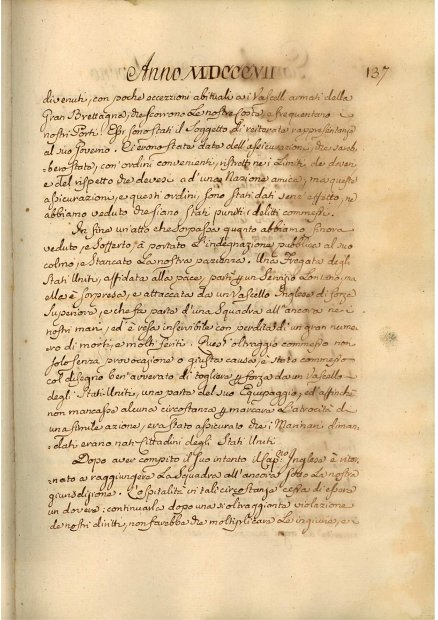 Anno MDCCCVII
137
divenuti, con poche eccezzioni abituali a i Vascelli armati della
Gran Brettagna, che scorrono le nostre Coste, e frequentano i
nostri Porti. Essi sono stati il soggetto di reiterate rappresentanze
al suo Governo. Ci erono state date dell'assicurazioni, che sareb-
bero stati, con ordini convenienti, ristretti ne i limiti de doveri
e del rispetto che devesi ad una Nazione amica, ma queste
assicurazioni, e questi ordini, sono stati dati senz'effetto, ne
abbiamo veduto che siano stati puniti i delitti commessi.
In fine un'atto che sorpassa quanto abbiamo sinora
veduto, e sofferto, à portato l'indegnazione pubblica al suo
colmo, e stancato la nostra pazienza. Una Fregata degli
Stati Uniti, affidata alla pace, partì p un servizio lontano, ma
ella è sorpresa, e attaccata da un Vascello Inglese di forza
superiore, e che fa parte d'una Squadra all'ancora ne i
nostri mari, ed è resa inservibile con perdita di un gran nume-
ro di morti, e molti feriti. Quest'oltraggio commesso non
solo senza provocazione o giusta causa, è stato commesso
col disegno ben'avverato di togliere p forza da un Vascello
degli Stati Uniti, una parte del suo Equipaggio, ed affinchè
non mancasse alcuna circostanza p marcare l'atrocità di
una simile azione, era stato assicurato che i Marinari diman-
dati erano nati Cittadini degli Stati Uniti.
Dopo aver compito il suo intento il Cap. Inglese è ritor-
nato a raggiungere la Squadra all'ancora sotto la nostra
giurisdizione. L'ospitalità in tali circostanze cessa di essere
un dovere: continuarla dopo una sì oltraggiante violazione
de nostri diritti, non farebbe che moltiplicare le ingiurie, e i